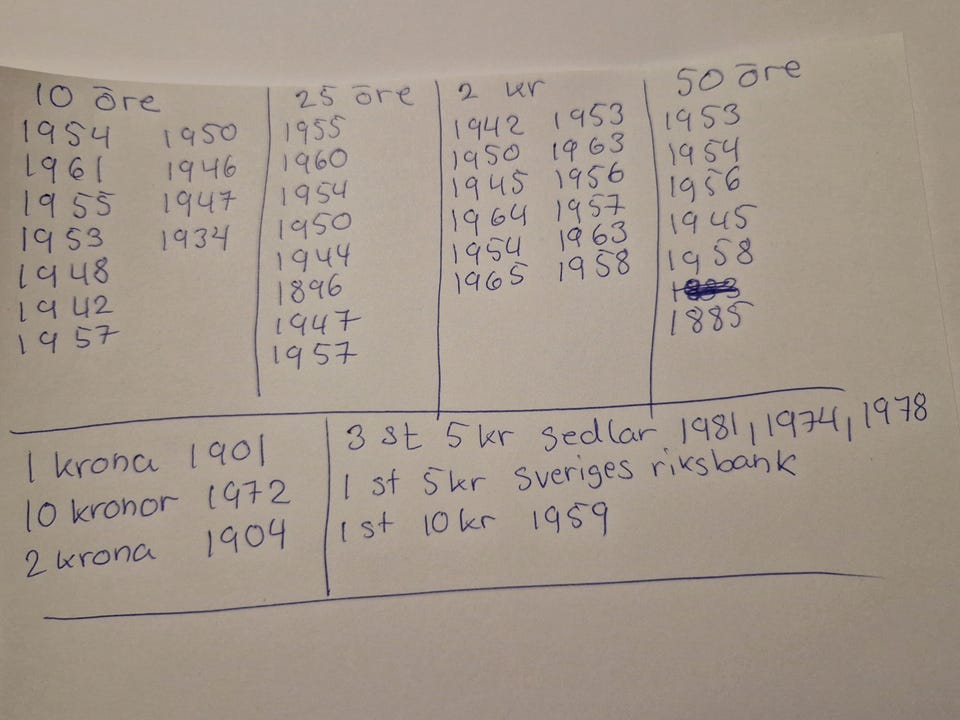 10 öre
1954 1950
1961 1946
1955 1947
1953 1934
1948
1942
1957
25 öre
1955
1960
1954
1950
1944
1896
1947
1957
2 kr
1942 1953
1950 1963
1945 1956
1964 1957
1954 1963
1965 1958
50 öre
1953
1954
1956
1945
1958
1885
1 krona 1901
10 kronor 1972
2 krona 1904
3 st 5 kr sedlar 1981, 1974, 1978
1 st 5 kr sveriges riksbank
1 st 10 kr 1959